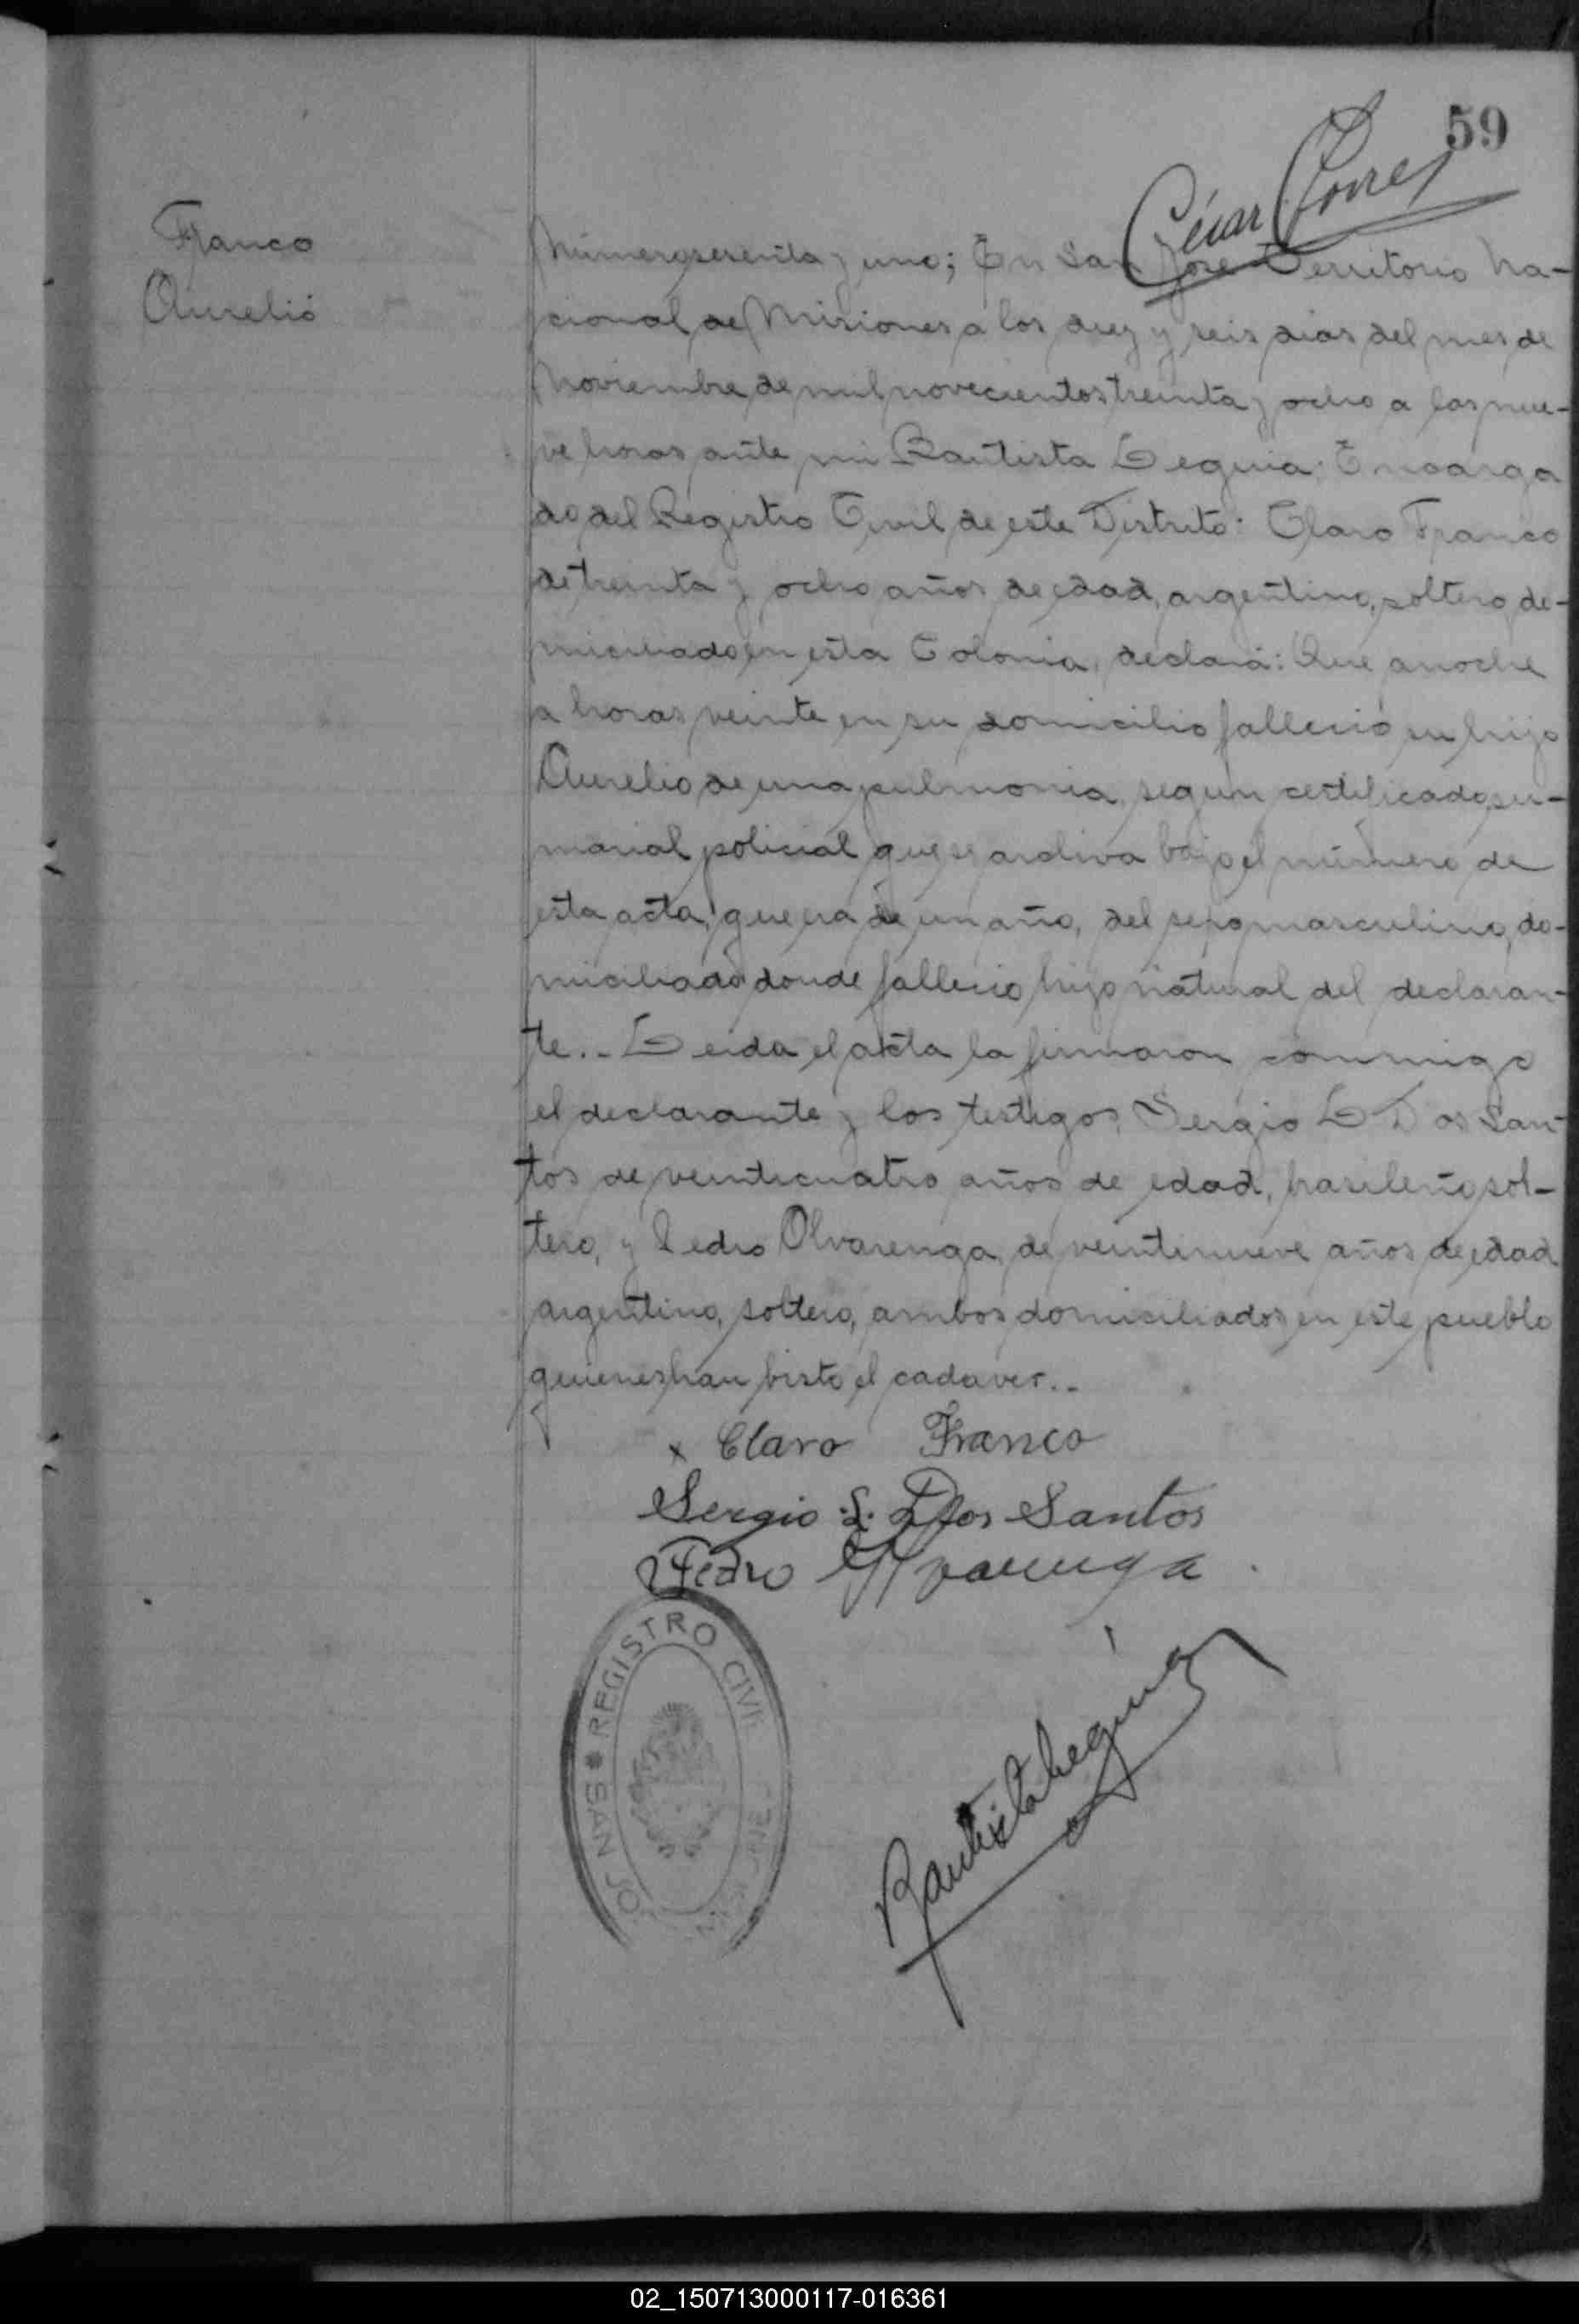 59
César Torres
Franco
Aurelio
Número sesenta y uno; En San José Territorio Na-
cional de Misiones a los diez y seis dias del mes de
Noviembre de mil novecientos treinta y ocho a las nue-
ve horas ante mi Bautista Leguia; Encarga
do del Registro Civil de este Distrito: Claro Franco
de treinta y ocho años de edad, argentino, soltero, do-
miciliado en esta Colonia, declara: Que anoche
a horas veinte en su domicilio fallecio su hijo
Aurelio de una pulmonia, segun certificado su-
marial policial que se archiva bajo el número de
esta acta, que era de un año, del sexo masculino, do-
miciliado donde fallecio, hijo natural del declaran-
te.. Leida el acta la firmaron conmigo
el declarante y los testigos, Sergio L Dos San-
tos de veinticuatro años de edad, brasileño, sol-
tero, y Pedro Olvarenga, de veintinueve años de edad
argentino, soltero, ambos domiciliados en este pueblo
quienes han bisto el cadaver..
x Claro Franco
Sergio L. Dos Santos
Pedro Olvarenga
REGISTRO CIVIL
SAN JO
Bautista Leguia
02_150713000117-016361